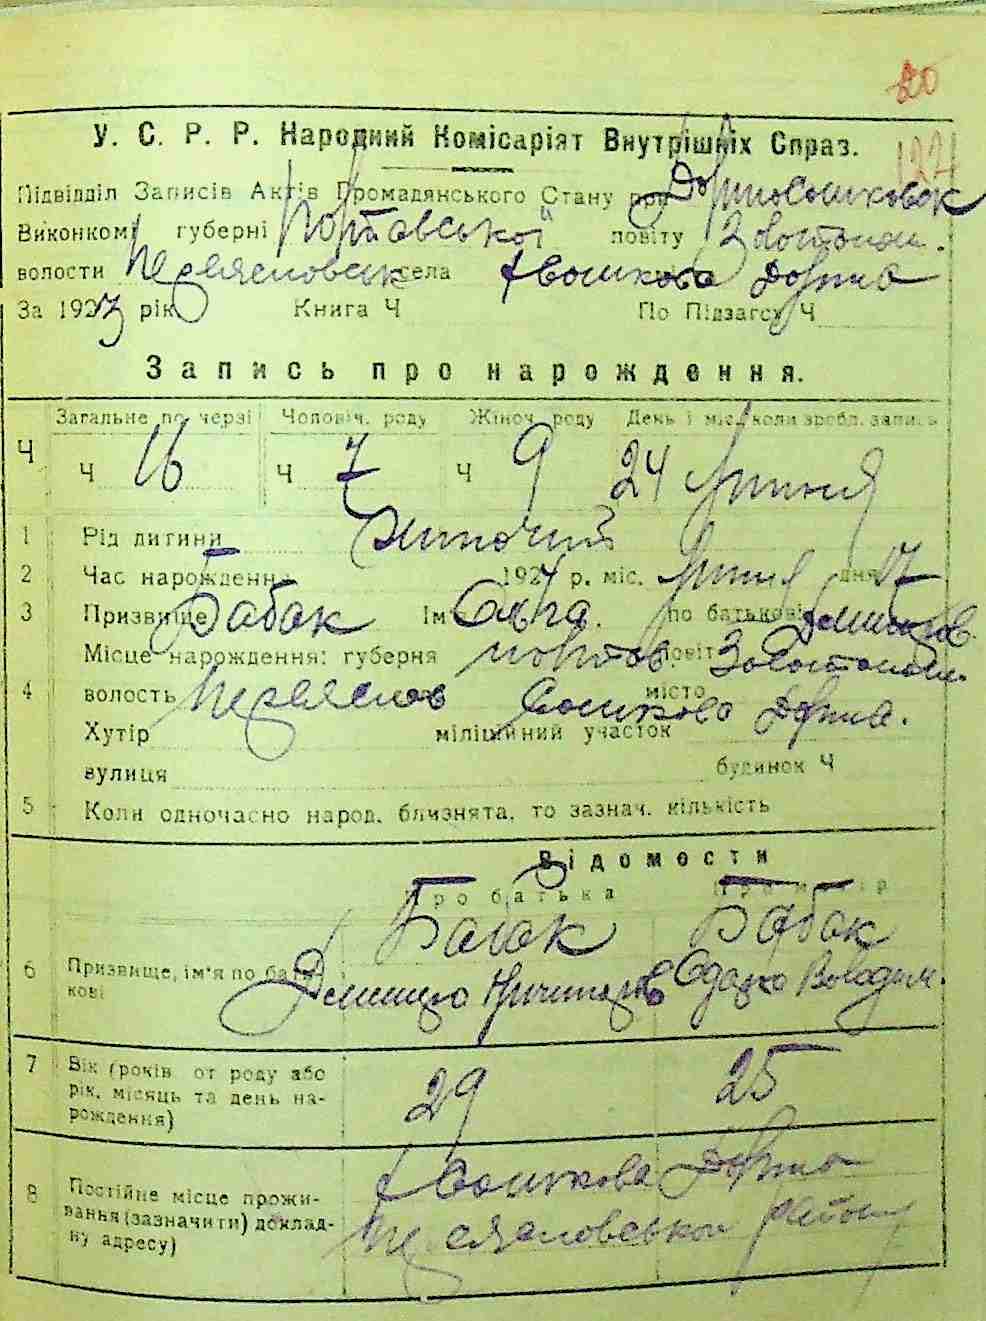 120
122
У. С. Р. Р. Народний Комісаріят Внутрішніх Справ.
Підвідділ Записів Актів Громадянського Стану при
Виконкомі губерні Полтавської повіту Золотонош.
волости Переяславськ села Сошкова Долина
За 1923 рік Книга Ч По Підзагсу Ч
Запись про нарождення.
Загальне по черзі Чоловіч. роду Жіноч. роду День і міс. коли зробл. запись
Ч Ч 16 Ч 7 Ч 9 24 Липня
1 Рід дитини Жиночий
2 Час нарождення 1924 р. міс. Липня дня 17
3 Призвище Бабак Ім Ольга. по батькові
Місце нарождення: губерня Полтов. повіт Золотонош.
4 волость Переяслов місто Сошкова Долина.
Хутір міліційний участок
вулиця будинок Ч
5 Коли одночасно народ. близнята, то зазнач. кількість
Відомости
Про батька Про матір
Бабак Бабак
6 Призвище, ім'я по бать-
кові Ничипоров Володим.
7 Вік (років от роду або
рік, місяць та день на-
рождення) 29 25
8 Постійне місце прожи-
вання (зазначити) доклад-
ну адресу) Сошкова Долина
Переясловського району